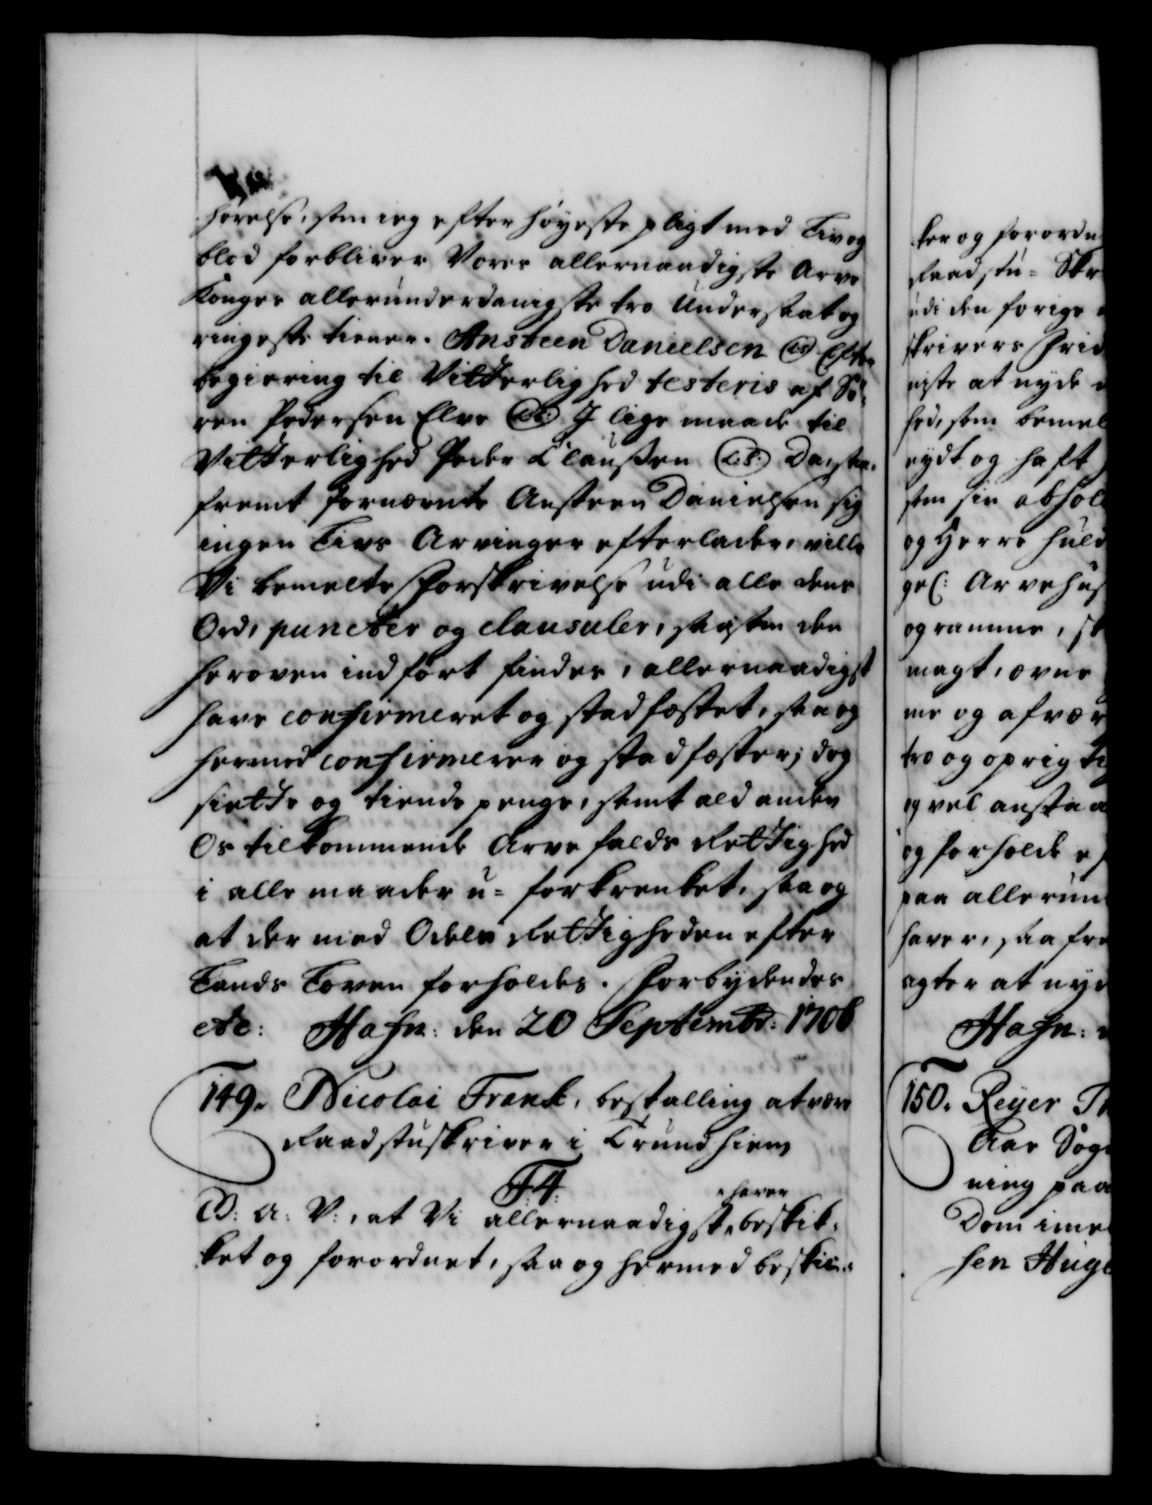 hørelse, som ieg efter høyeste pligt med Liv og
blod forbliver Vores allernaadigste Arve
Konges allerunderdanigste tro Undersaat og
ringeste tiener. Ansteen Danielsen (LS) Efter
begiering til Vitterlighed testeris af Sø-
ren Pedersen Elve (LS:) I lige maade til
Vitterlighed Peder Claussen (L:S:) Da, saa-
fremt fornævnte Ansteen Danielsen sig
ingen Livs Arvinger efterlader, ville
Vi bemelte Forskrivelse udi alle dens
Ord, puncter og clausuler, saasom den
heroven indført findes, allernaadigst
have confirmeret og stadfæstet, saa og
hermed confirmerer og stadfæster; dog
siette og tiende penge, samt ald anden
Os tilkommende Arve falds Rettighed
i alle maader u-forkrenket, saa og
at der med Odels Rettigheden efter
Lands Loven forholdes. Forbydendes
etc: Hafn: den 20 Septembr: 1706
149. Nicolai Frank, bestalling at være
Raadstuskriver i Trundhiem
F4.
G: A: V:, at Vi allernaadigst haver beskik-
ket og forordnet, saa og hermed beskik-
ker og forordn
Raadstu- Skr
udi den forige
skrivers
niste at nyde
hed, som bemel
nydt og haft
som sin
og Herre huld
gel: Arvehus
og ramme, 
magt, 
me og afvær
tro og oprigti
og vel anstaa
og forholde
paa allerun
haver, saa fre
agter at nyd
Hafn:
150. Reyer
Aar Sog
ning paa
Dom imel
sen Huge